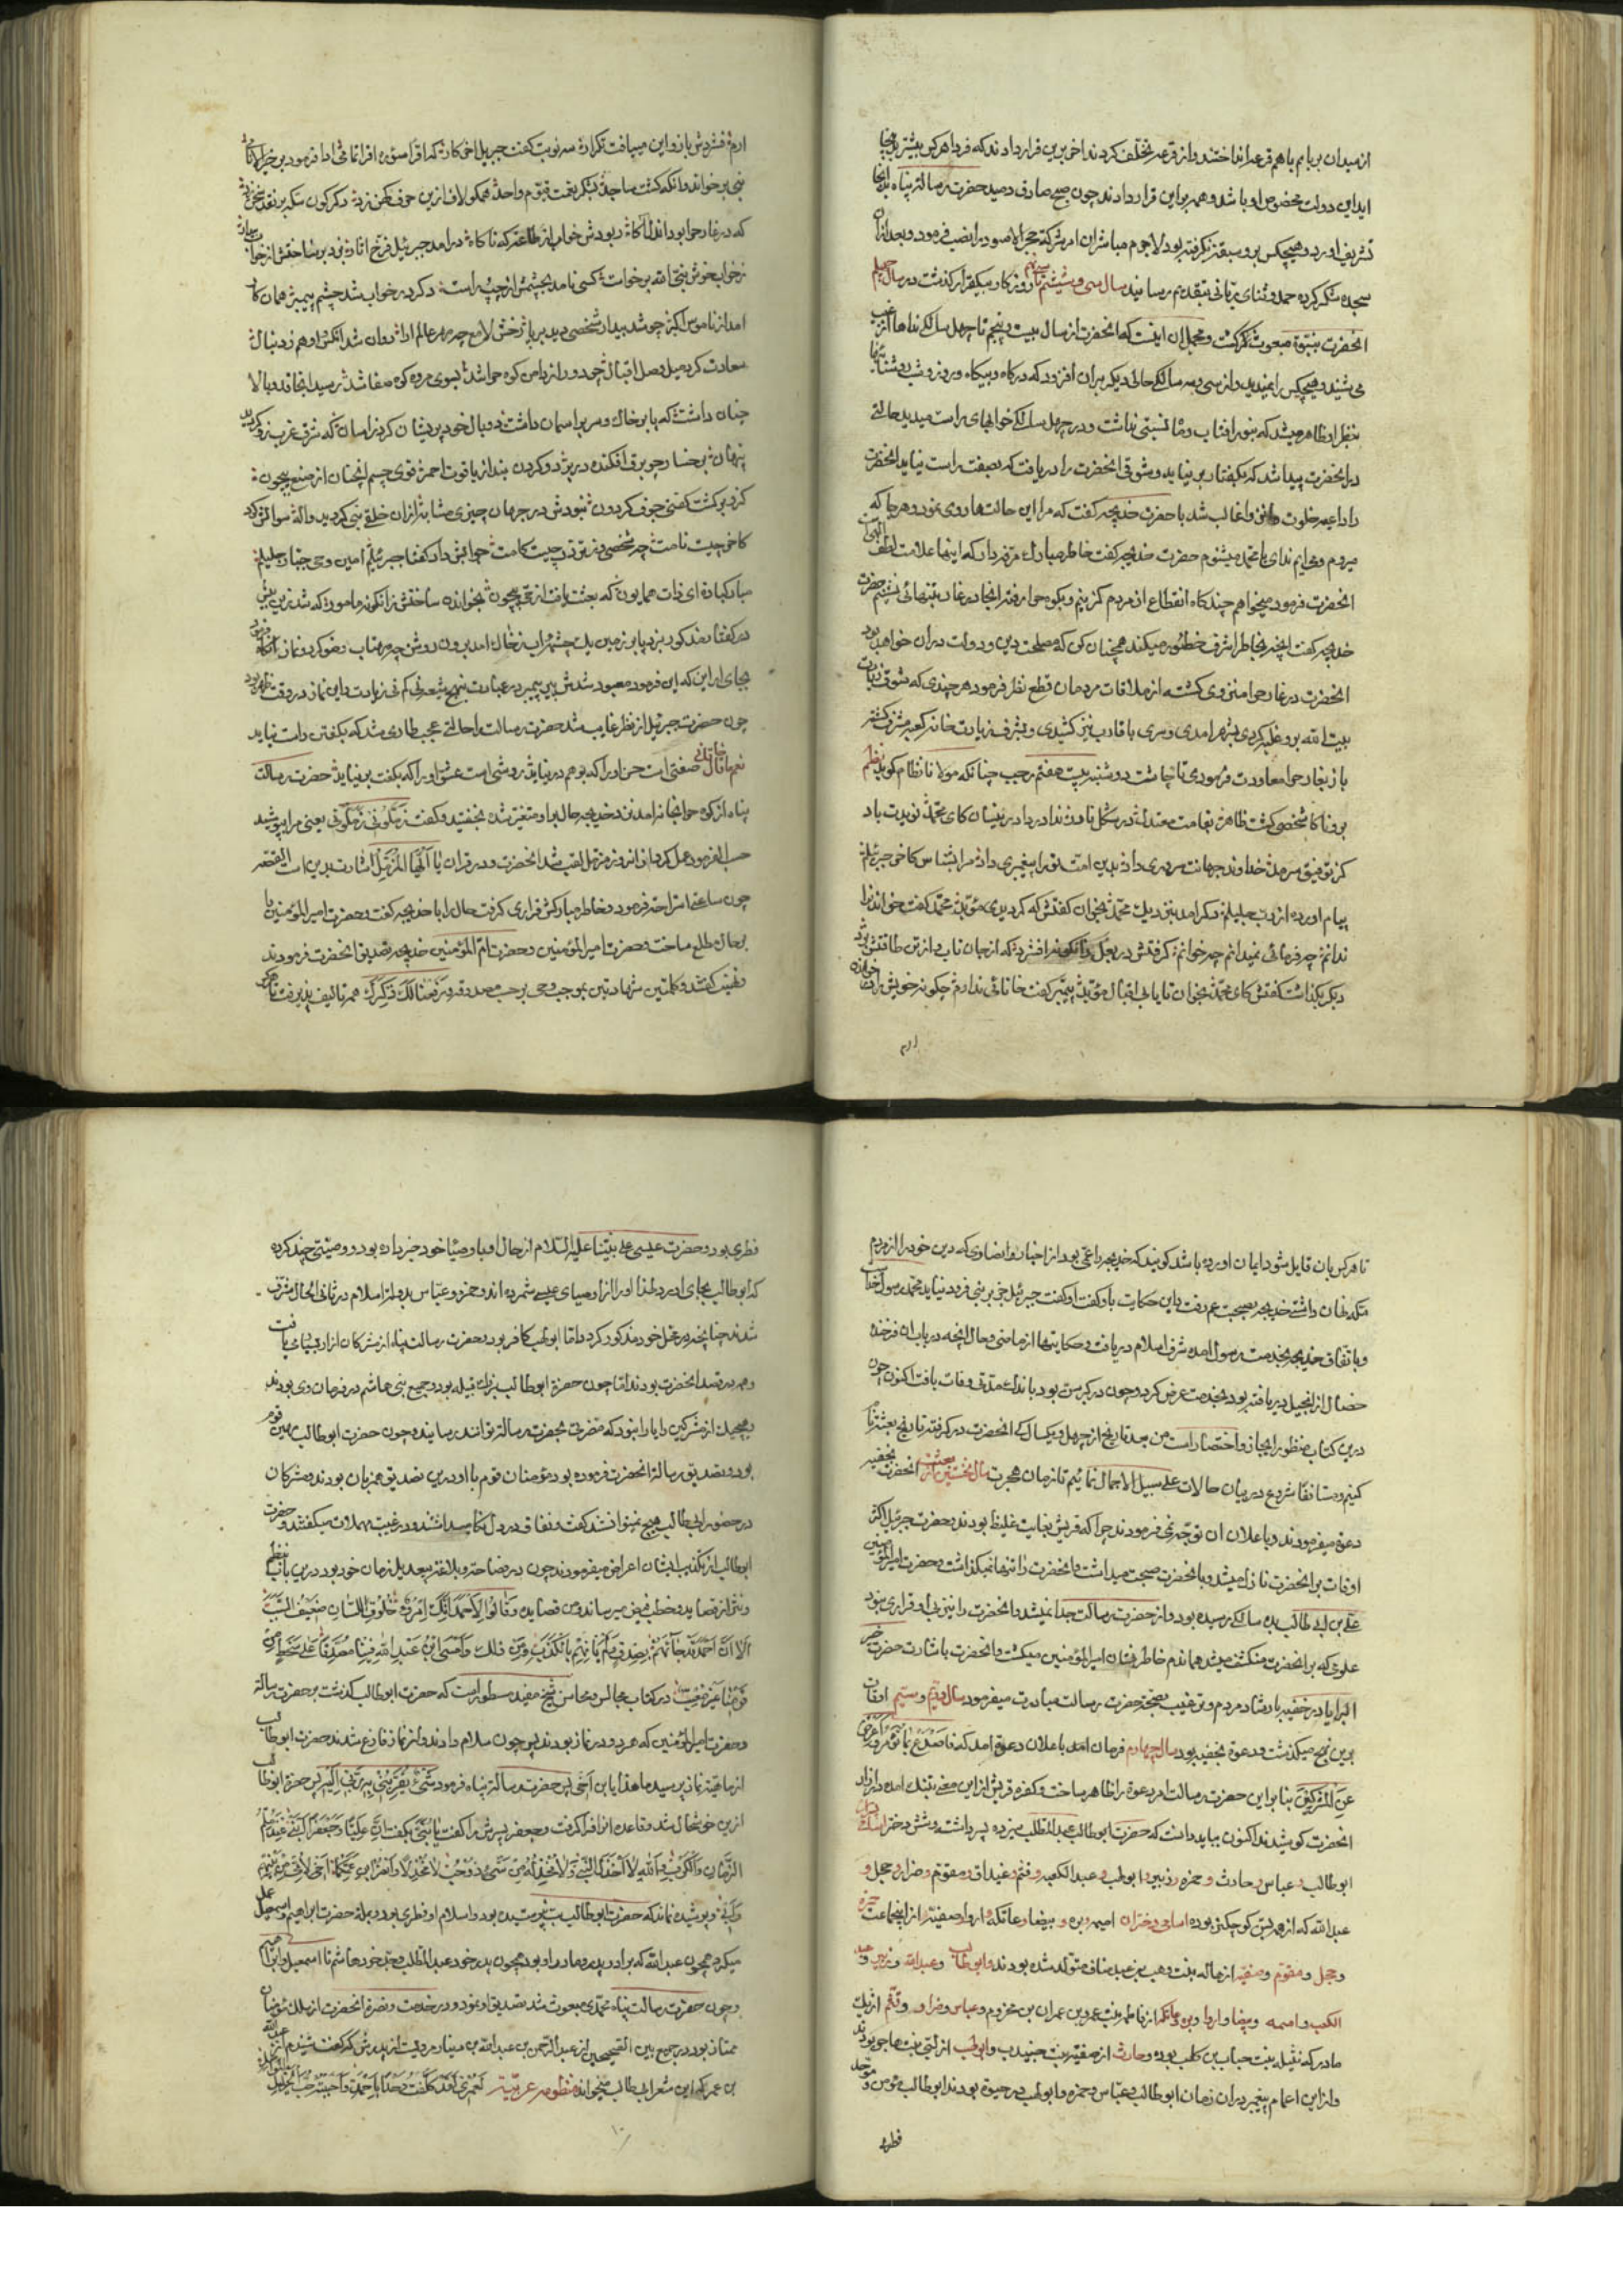 از میدان برپایم باهم قرعه انداختند و از قرعه تخلف کردند اخر برین قرار دادند که فردا هر کس پیشتر بانجا
اید این دولت مخصوص او باشد و همه براین قرار دادند چون صبح صادق دمید حضرت رسالت پناه بدانجا
تشریف اورد و هیچکس برو سبقت نگرفته بود لاجرم مباشران امر شرکت حجر الاسود را نصب فرمود و بعد ازان
سجده شکر کرده حمد و ثنای ربانی بتقدیم رسانید سال سی و ششم تا روزکار بیکقرار کذشت در سال چهلم
انحضرت بنبوة مبعوث کشت و مجمل ان اینست که انحضرت از سال بیست و پنجم تا چهل سالکی نداها از غیب
می شنید و هیچکس را نمیدید و از سی و سه سالکی حالی دیکر بران افزود که در کاه و بیکاه و روز و شب روشنائیها
بنظر او ظاهر میشد که بنور افتاب و ماه نسبتی نداشت و در چهل سالکی خوابهای راست میدید حالتی
در انحضرت پیدا شد که بکفتار بر نیاید و شوقی انحضرت را دریافت که بصفت راست نیاید انحضرت
را داعیه خلوت غالب شد با حضرت خدیجه کفت که مرا این حالتها روی نمود و هر جا که
میروم و می ایم ندای یا محمد میشنوم حضرت خدیجه کفت خاطر مبارک مرنجدار که اینها علامت لطف الهی
انحضرت فرمود میخواهم چند کاه انقطاع از مردم کزینم و بکوه حرا رفته انجا در غار بتنهائی بنشینم حضرت
خدیجه کفت انچه بخاطر اشرف خطور میکند همچنان کن که مصلحت دین و دولت دران خواهد بود
انحضرت در غار حرا منزوی کشته از ملاقات مردمان قطع نظر فرمود هر چندی که شوق زیارت
بیت الله برو غلبه کردی بشهر امدی و سری باقارب نیز کشیدی و بشرف زیارت خانه کعبه مشرف کشته
باز بغار حرا معاودت فرمودی تا چاشت دوشنبه بیست هفتم رجب چنانکه مولانا نظام کوید نظم
کز توفیق سرمد خداوند جهانت سروری داد بدین امت تو را پیغمبری داد مرا بشناس کاخر جبرئیلم
پیام اورده از رب جلیلم دکر امد بنزدیک محمد بخوان کفتش که کردیدی مؤید محمد کفت خواندن را
ندانم چه فرمائی نمیدانم چه خوانم کرفتش در بغل وانکونه افشرد که از جان تاب و از تن طاقتش برد
دیکر بکذاشت کفتش کای محمد بخوان تا یابی اقبال مؤبد پیمبر کفت خانائی ندارم چکونه خویش را خواننده
ارم
ارم فشردش باز و این میبافت تکرار سه نوبت کفت جبریل اخر کار که اقرا سوره اقرا تمامی ادا فرمود
که در غار حرا بود اندل اکاه ربودش خواب از طاعت که ناکاه در امد جبرئیل فرخ اثار
ز خواب خوش نبی الله برخواست کسی نامد بچشمش از چپ و راست دکر در خواب شد چشم پیمبر همان کار
امد از ناموس اکبر چو شد بیدار شخصی دید بر پا رخش لامع چو مهر عالم ارا روان شد انکس او هم ز دنبال
سعادت کرد میل وصل اقبال چو دور از دامن کوه حرا شد بسوی مروه کوه صفا شد رسید انجا قد و بالا
چنان داشت که پا بر خاک و سر بر اسمان داشت دو بال خود پریشان کرد زانسان که شرق و غرب زو کردید
پنهان ز رخسار چو برق افکنده در پرد دو کردن بند از یاقوت احمر قوی جسم انچنان از صنع بیچون
کزو پر کشت کفتی جوف کردون نبودش در جهان چیزی مشابه ازان خلقت نبی کردید واله سوالش کرد
کاخر چیست نامت چه شخصی در نزدت چیست کامت جوابش داد کفتا جبرئیلم امین وحی جبار جلیلم
مبارکبادت ای ذات همایون که بعثت یافت از حق بیچون بخواند ساختش زانکونه مامور که شد زین پیش
در کفتار مذکور بزد پا بر زمین یک چشمه اب ز خاک امد برون روشن چو مهتاب وضو کرد و نماز انکاه
بجای اورد این که این فرمود معبود شدش پی پیمبر در عبادت
چون حضرت جبرئیل از نظر غایب شد حضرت رسالت را حالتی عجب طاری شد که بکفتن راست نیاید
نعم ما قال خاقانی صفتی است حسن اورا که بوهم در نیاید روشی است عشق اورا که بکفت بر نیاید حضرت رسالت
پناه از کوه حرا بخانه امد نزد خدیجه حال بر او متغیر شده بخفتید و کفت زملونی زملونی یعنی مرا بپوشید
حسب الفرموده عمل کرد و ازانروز مزمل لقب شد انحضرت و در قران یا ایها المزمل اشارت بدین است القصه
چون ساعتی استراحت فرمود و خاطر مبارکش قراری کرفت حال را با خدیجه کفت و حضرت امیر المؤمنین را
برحال مطلع ساخت و حضرت امیر المؤمنین و حضرت ام المؤمنین خدیجه تصدیق انحضرت فرمودند
و کلمتین شهادتین بموجب وحی برحسب و رفعنا لک ذکرک هم تالیف پذیرفت تا هرکه
تا هر کس بان قایل شود ایمان اورده باشد کویند که خدیجه را عمی بود از احبار نصاری که دین خود را از مردم
متکد نهان داشتی خدیجه بصحبت عم رفت و این حکایت باو کفت او کفت جبرئیل جز بر نبی فرود نیاید محمد رسول خداست
و باتفاق خدیجه بخدمت رسول امده شرف اسلام دریافت و حکایتها از ماضی و حال انچه در باب ان فرخنده
خصال از انجیل دریافته بود بخدمت عرض کرد و چون در کبر سن بود باندک مدتی وفات یافت اکنون چون
درین کتاب منظور ایجاز و اختصار است من بعد تاریخ از چهل و یکسالکی انحضرت در کرفته تاریخ بعثت را
کنیم و مستانفا شروع در بیان حالات علی سبیل الاجمال نمائیم تا زمان هجرت سال نخستین از بعثت انحضرت بخفیه
دعوة میفرمودند و باعلان ان توجه نمی فرمودند چرا که قریش بغایت غلیظ بودند و حضرت جبرئیل اکثر
اوقات بر انحضرت نازل میشد و با انحضرت صحبت میداشت و انحضرت را تنها نمیکذاشت و حضرت امیر المؤمنین
علی بن ابی طالب بده سالکی رسیده بود و از حضرت رسالت جدا نمیشد و انحضرت را نیز بی او قراری نبود
علومی که بر انحضرت منکشف میشد هماندم خاطر نشان امیر المؤمنین میکشت و انحضرت باشارت حضرت خیر
البرایا در خفیه بارشاد مردم و ترغیب بصحبت حضرت رسالت مبادرت میفرمود سال دویم و سیم اوقات
برین نهج میکذشت و دعوة بخفیه بود سال چهارم فرمان امد باعلان دعوة امد که فاصدع بما تؤمر و اعرض
عن المشرکین بنابراین حضرت رسالت امر دعوة را ظاهر ساخت و کفره قریش از این معنی بتنک امده در ازار
انحضرت کوشیدند اکنون بباید دانست که حضرت ابوطالب عبد المطلب سیزده پسر داشت و شش دختر
ابوطالب و عباس و حارث و حمزه و زبیر و ابولهب و عبد الکعبه و قثم و غیداق و مقوم و ضرار و حجل و
عبد الله که از همه پسرن کوچکتر بوده اسامی دختران امیمه و بره و بیضا و عاتکه و اروا و صفیه از اینجماعت حمزه
و حجل و مقوم و صفیه از هاله بنت وهیب بن عبد مناف متولد شده بودند و ابوطالب و عبد الله و زبیر و عبد
الکعب و امیمه و بیضا و اروا و بره و عاتکه از فاطمه بنت عمرو بن عمران بن مخزوم و عباس و ضرار و قثم از یک
مادر که نتیله بنت حباب بن کلب بوده و حارث از صفیه بنت جنیدب و ابولهب از لبنی بنت هاجر بودند
و از این اعمام پیغمبر دران زمان ابوطالب و عباس و حمزه و ابولهب در حیوة بودند ابوطالب مؤمن و موحد
فطری
فطری بود و حضرت عیسی علی نبینا علیه السلام از حال او با وصیا خود خبر داده بود و وصیتی چند کرده
که ابوطالب بجای اورد و لهذا اورا از اوصیای عیسی شمرده اند و حمزه و عباس بدولت اسلام در ثانی الحال مشرف
شدند چنانچه در محل خود مذکور کردد و اما ابولهب کافر بود و حضرت رسالت پناه از مشرکان ازار بسیاری یافت
و همه در قصد انحضرت بودند اما چون حضرت ابوطالب بزرک قبیله بود و جمیع بنی هاشم در فرمان وی بودند
هیچیک از مشرکین را یارا نبود که مضرتی بحضرت رسالت توانند رسانید و چون حضرت ابوطالب مهین قوم
بود و تصدیق رسالت انحضرت فرموده بود مؤمنان قوم با او درین تصدیق همزبان بودند و مشرکان
در حضور ابی طالب هیچ نمیتوانستند کفت و نفاق در دل نکاه میداشتند و در غیبت مهملات میکفتند و حضرت
ابوطالب از تکذیب ایشان اعراض میفرمودند چون در فصاحت و بلاغت بیعدیل زمان خود بود درین باب نظم
و نثر از قصاید و خطب فیض میرساند و من قصایده و قالوا لاحمد انت امرؤ خلوف اللسان ضعیف السبب
الا ان احمد قد جائهم بصدق و لم یاتهم بالکذب و من ذلک و امسی ابن عبد الله فینا مصدقا علی سخط من
قومنا غیر معتب در کتاب مجالس و محاسن شیخ مفید مسطور است که حضرت ابوطالب کذشت بر حضرت رسالة
و حضرت امیر المؤمنین که هردو در نماز بودند پس چون سلام دادند و از نماز فارغ شدند حضرت ابوطالب
از ماهیت نماز پرسید ما هذا یابن اخی پس حضرت رسالت پناه فرمود شیء یقربنی به ربی الیه پس حضرت ابوطالب
ازین خوشحال شد و قاعده انرا فرا کرفت و جعفر پسرش را کفت یا بنی بکفت ان علیا و جعفرا ثقتی عند ملم
الزمان و الکرب و الله لا اخذل النبی و لا یخذله من بنی ذو حسب لا تخذلا و انصرا ابن عمکما اخی لامی من بینهم
و ابی و پوشیده نماند که حضرت ابوطالب بت نپرستیده بود و اسلام او فطری بود و بملت حضرت ابراهیم و اسمعیل عمل
میکرد همچون عبد الله که برادر پدر و مادر او بود و همچون پدر خود عبد المطلب و جد خود هاشم تا اسمعیل و ابراهیم
و چون حضرت رسالت پناه محمدی مبعوث شد تصدیق او نمود و در خدمت و نصرت انحضرت از سلک مؤمنان
ممتاز بود در جمع بین الصحیحین از عبد الرحمن بن عبد الله بن دینار مرویست از پدرش که کفت شنیدم از عبد الله
بن عمر که این شعر ابی طالب میخواند منظومه عربیة لعمری لقد کلفت وجدا باحمد و احببته حب
۱۰